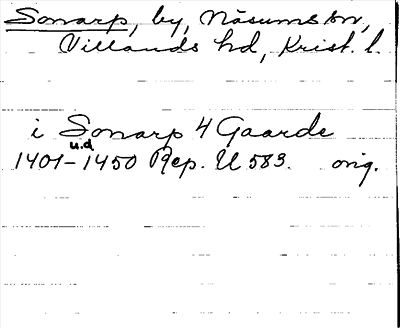 Sonarp, by, Näsums sn,
Villands hd, Krist. l.
i Sonarp 4 Gaarde
u.d
1401-1450 Rep. U 583. orig.